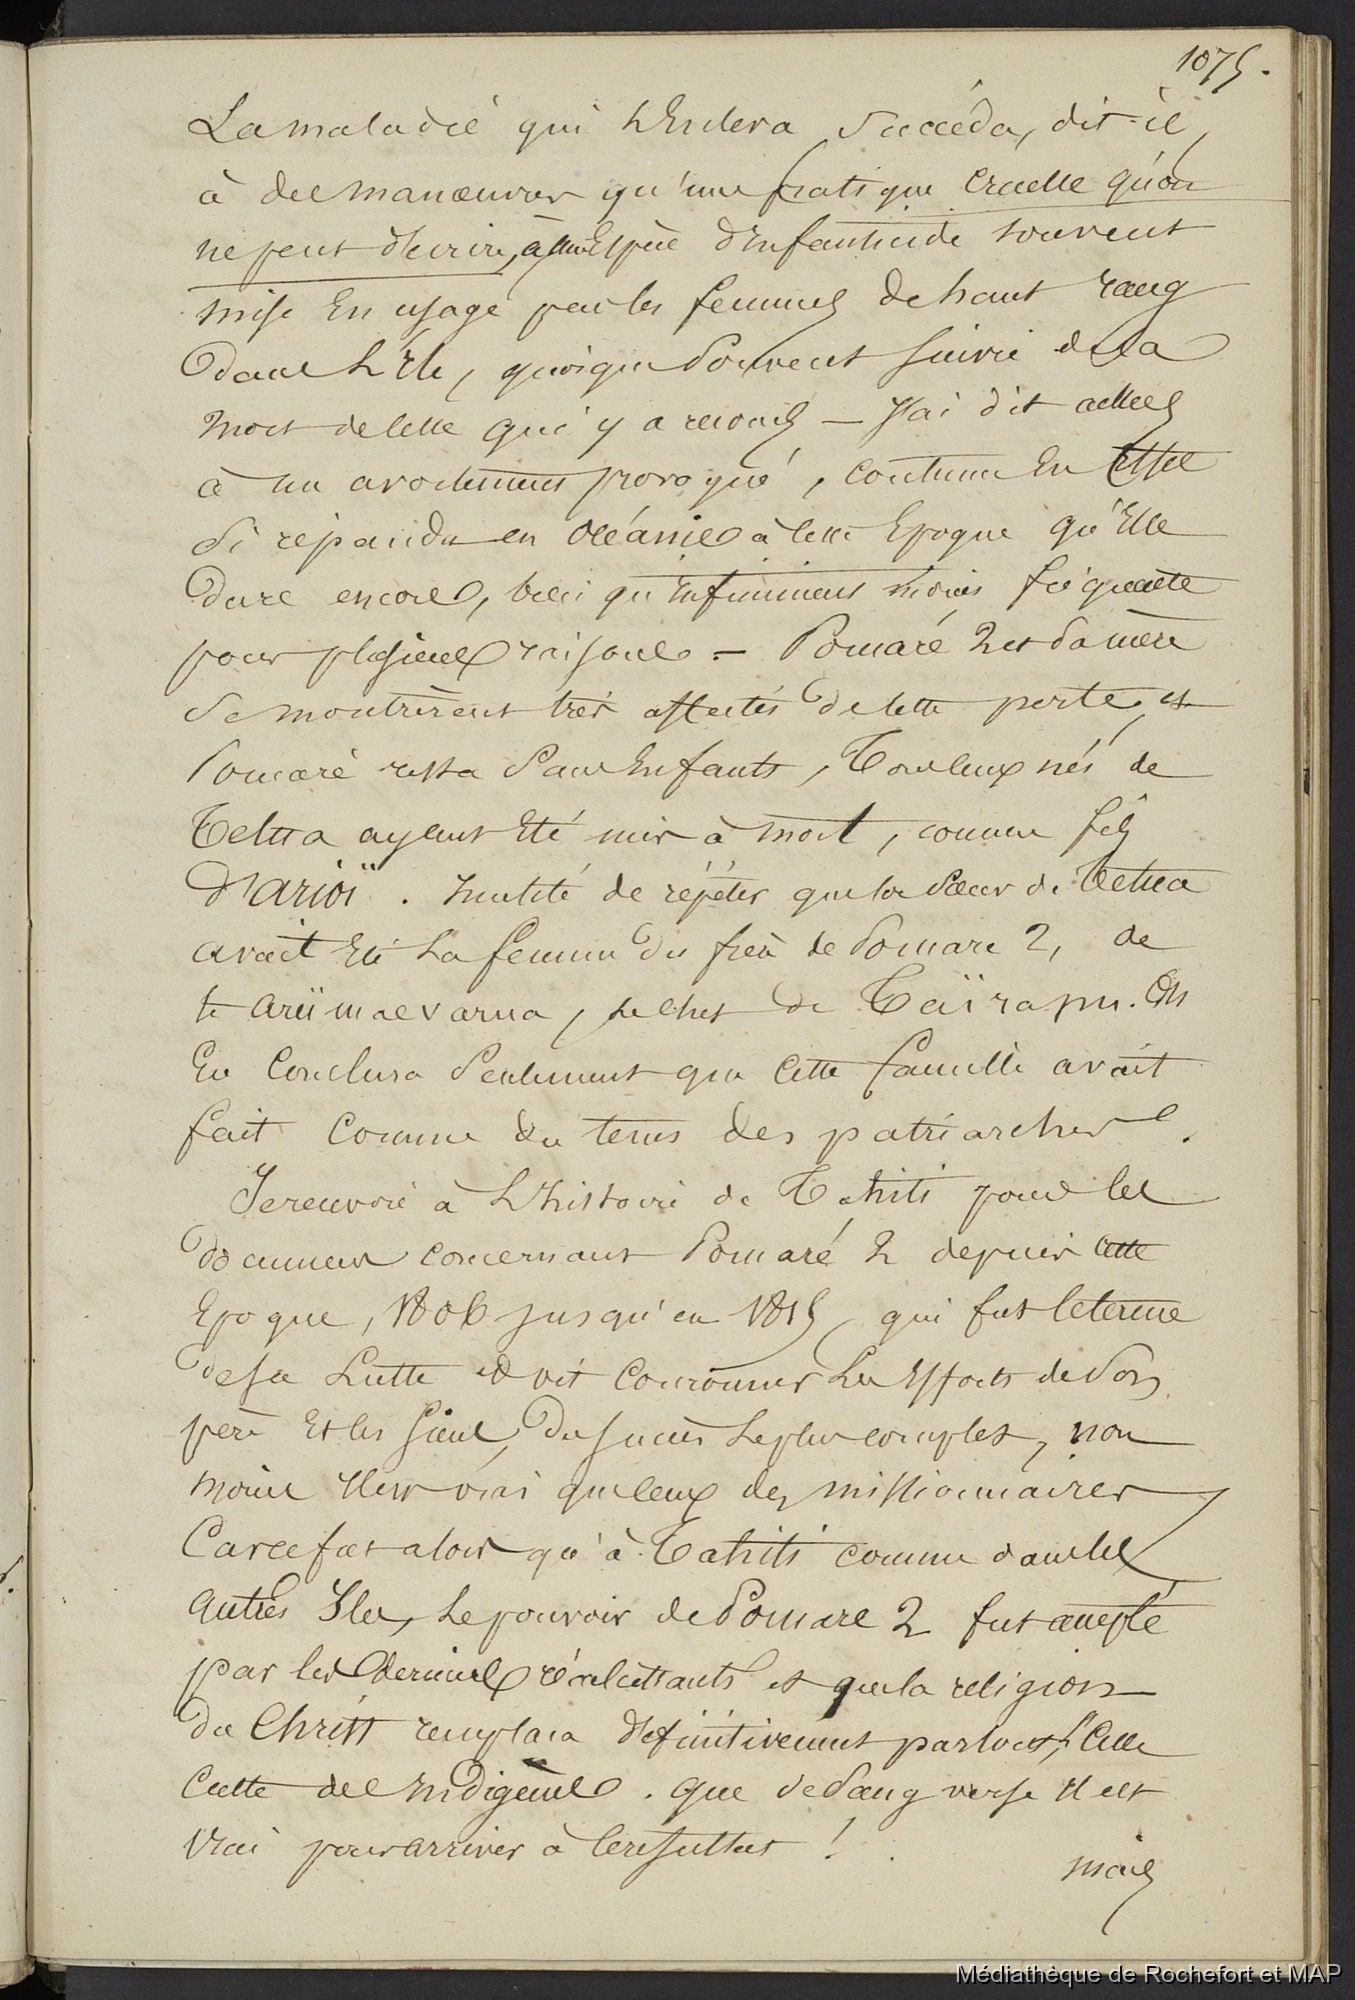 1075.
La maladie qui l'enleva succéda, dit-il,
à des manœuvres qu'une pratique cruelle qu'on
ne peut décrire, à une espèce d'infanticide souvent
mise en usage par les femmes de haut rang
dans l'île, quoique souvent suivie de la
mort de celle qui y a recours — J'ai dit ailleurs
à un avortement provoqué, coutume en effet
si répandue en Océanie à cette époque qu'elle
dure encore, bien qu'infiniment moins fréquente
pour plusieurs raisons. — Pomaré 2 et sa mère
se montrèrent très affectés de cette perte, et
Pomaré resta sans enfants, tous ceux nés de
Tetua ayant été mis à mort, comme fils
d'arioï. Inutile de répéter que la sœur de Tetua
avait été la femme du frère de Pomare 2, de
te ariimaevarua, le chef de Taïrapu. On
en conclura seulement que cette famille avait
fait comme du tems des patriarches.
Je renvoie à l'histoire de Tahiti pour les
données concernant Pomaré 2 depuis cette
époque, 1806 jusqu'en 1815, qui fut le terme
de sa lutte et vit couronner les efforts de son
père et les siens, du succès le plus complet, non
moins il est vrai que ceux des missionnaires
Car ce fut alors qu'à Tahiti comme dans les
autres îles, le pouvoir de Pomare 2 fut accepté
par les derniers récalcitrants et que la religion
du Christ remplaça définitivement partout,
culte des indigènes. Que de sang versé il est
vrai pour arriver à ce résultat !
mais
Médiathèque de Rochefort et MAP